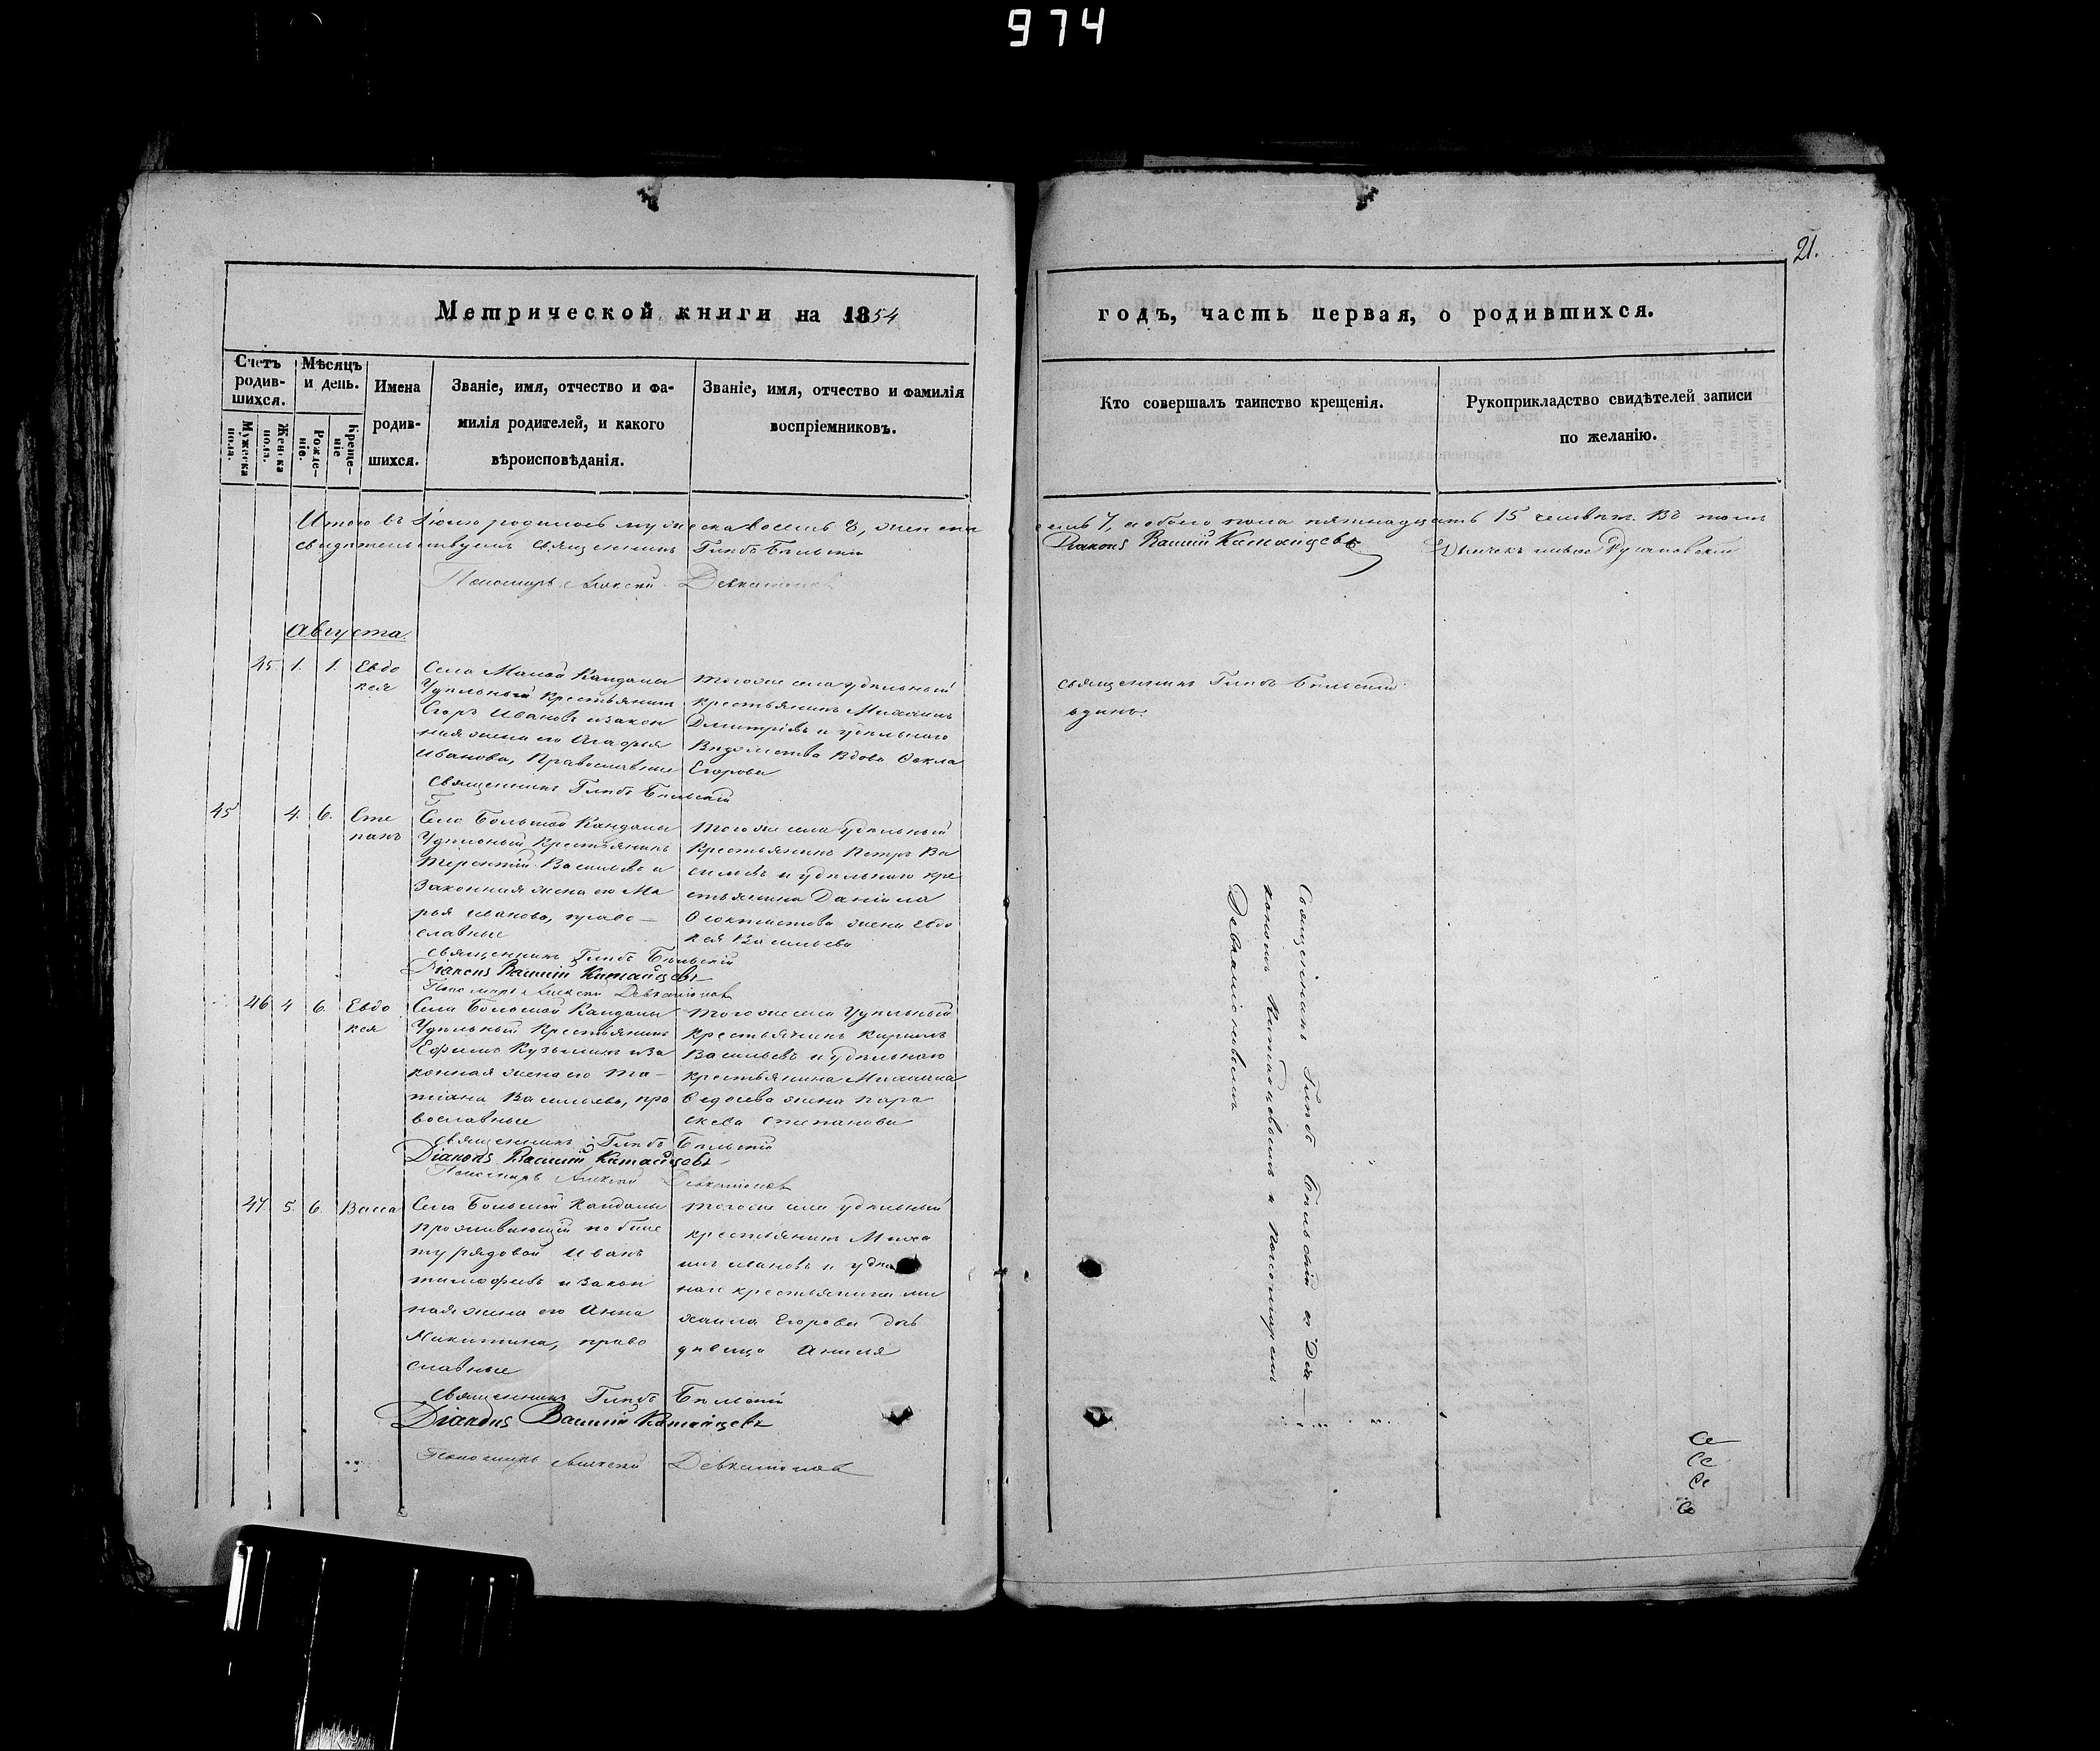 974
21.
Метрической книги на 1854
годъ, часть первая, о родившихся.
Счетъ родив-шихся.
Мужеска пола.
Женска пола.
Мѣсяцъ и день.
Рожде-ніе.
Креще-ніе
Имена
родив-
шихся.
Званіе, имя, отчество и фа-
милія родителей, и какого
вѣроисповѣданія.
Званіе, имя, отчество и фамилія
воспріемниковъ.
Кто совершалъ таинство крещенія.
Рукоприкладство свидѣтелей записи
по желанію.
Итого въ Іюлѣ родилось мужеска восемь 8, женска
семь 7, а обоего пола пятнадцать 15 человѣкъ. Въ томъ
свидѣтельствуемъ Священникъ Глѣбъ Бѣльскій
Діаконъ Василій Китайцевъ
Дьячекъ
Пономарь Алексей Девлатовъ
Августа.
45 1. 1. Евдо
кея
Села Малой Кандалы
Удѣльный крестьянинъ
Егоръ Ивановъ и закон
ная жена его Агафья
Иванова, Православные
тогоже села удѣльный
крестьянинъ Михаилъ
Дмитріевъ и удѣльнаго
Вѣдомства вдова Ѳекла
Егорова
Священникъ Глѣбъ Бѣльскій
священникъ Глѣбъ Бѣльскій
одинъ.
45 4. 6. Сте
панъ
Села Большой Кандалы
Удѣльный Крестьянинъ
Терентій Васильевъ и
Законная жена его Ма
рья Иванова, право—
славные
тогоже села удѣльный
Крестьянинъ Петръ Ва
сильевъ и удѣльнаго кре
стьянина Даніила
Ѳеоктистова жена Евдо
кея Васильева
священникъ Глѣбъ Бѣльскій
Діаконъ Василій Китайцевъ
Пономарь Алексей
46 4 6. Евдо
кея
Села Большой Кандалы
Удѣльный Крестьянинъ
Ефимъ Кузьминъ и за
конная жена его Та—
тіана Васильева, пра
вославные
тогоже села Удѣльный
крестьянинъ Кирилъ
Васильевъ и удѣльнаго
крестьянина Михаила
Ѳедосева жена Пара
скева Степанова
священникъ Глѣбъ Бѣльскій
Діаконъ Василій Китайцевъ
Пономарь Алексей
47. 5. 6. Васса
Села Большой Кандалы
проживающій по биле
ту рядовой Иванъ
тимофеевъ и закон
ная жена его Анна
Никитина, право
славные
тогоже села удѣльный
крестьянинъ Миха
илъ Ивановъ и удѣль
наго крестьянина ми
хаила Егорова дочь
дѣвица
Священникъ Глѣбъ Бѣльскій
Діаконъ Василій Китайцевъ
Пономарь Алексей
Священникъ Глѣбъ Бѣльскій съ Діа—
кономъ Китайцевымъ и пономаремъ